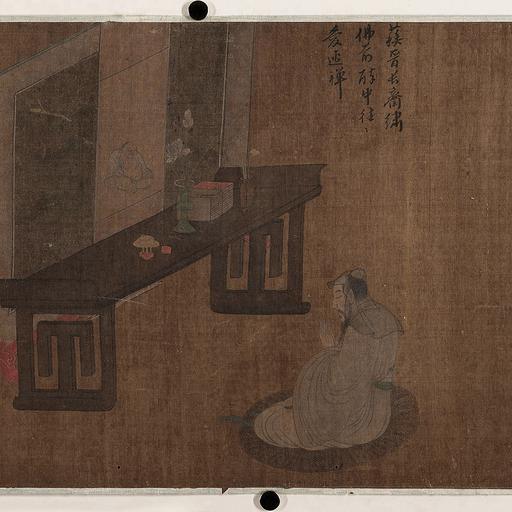 蘇晉長齋繡
佛前醉中往
愛逃禪